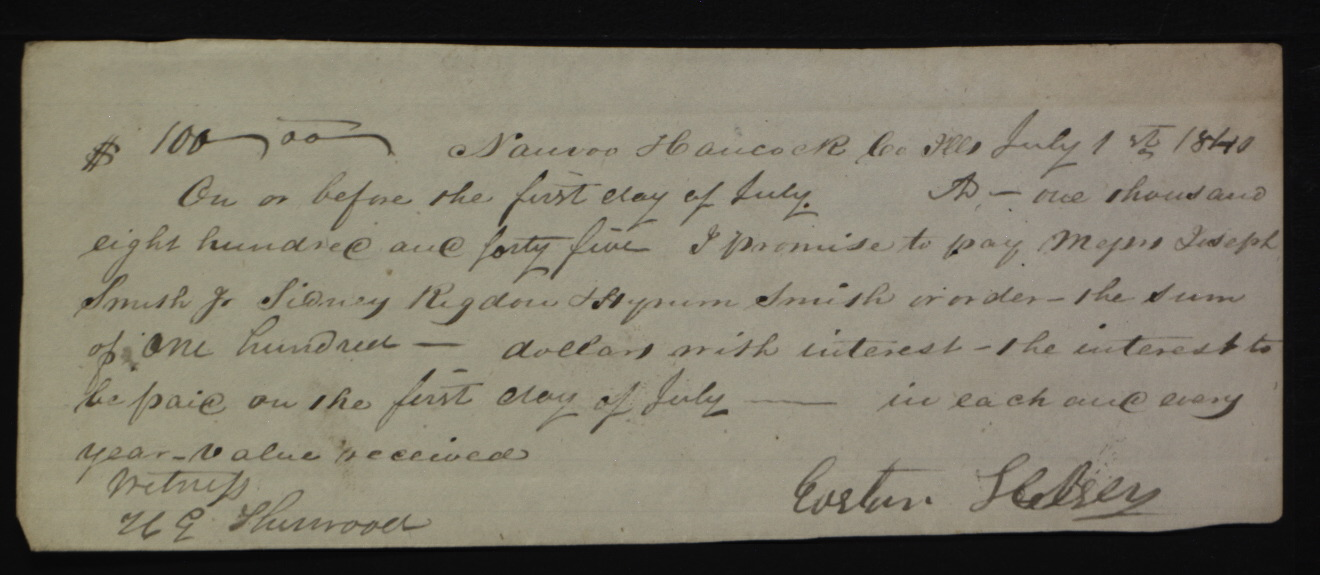 $ 100 00 Nauvoo Hancock Co Ills July 1st 1840
On or before the first day of July AD — one thousand
eight hundred and forty five I promise to pay Messrs Joseph
Smith Jr Sidney Rigdon & Hyrum Smith or order – the sum
of One hundred — dollars with interest – the interest to
be paid on the first day of July — in each and every
year – value received
Witness
H G Sherwood Kelsey